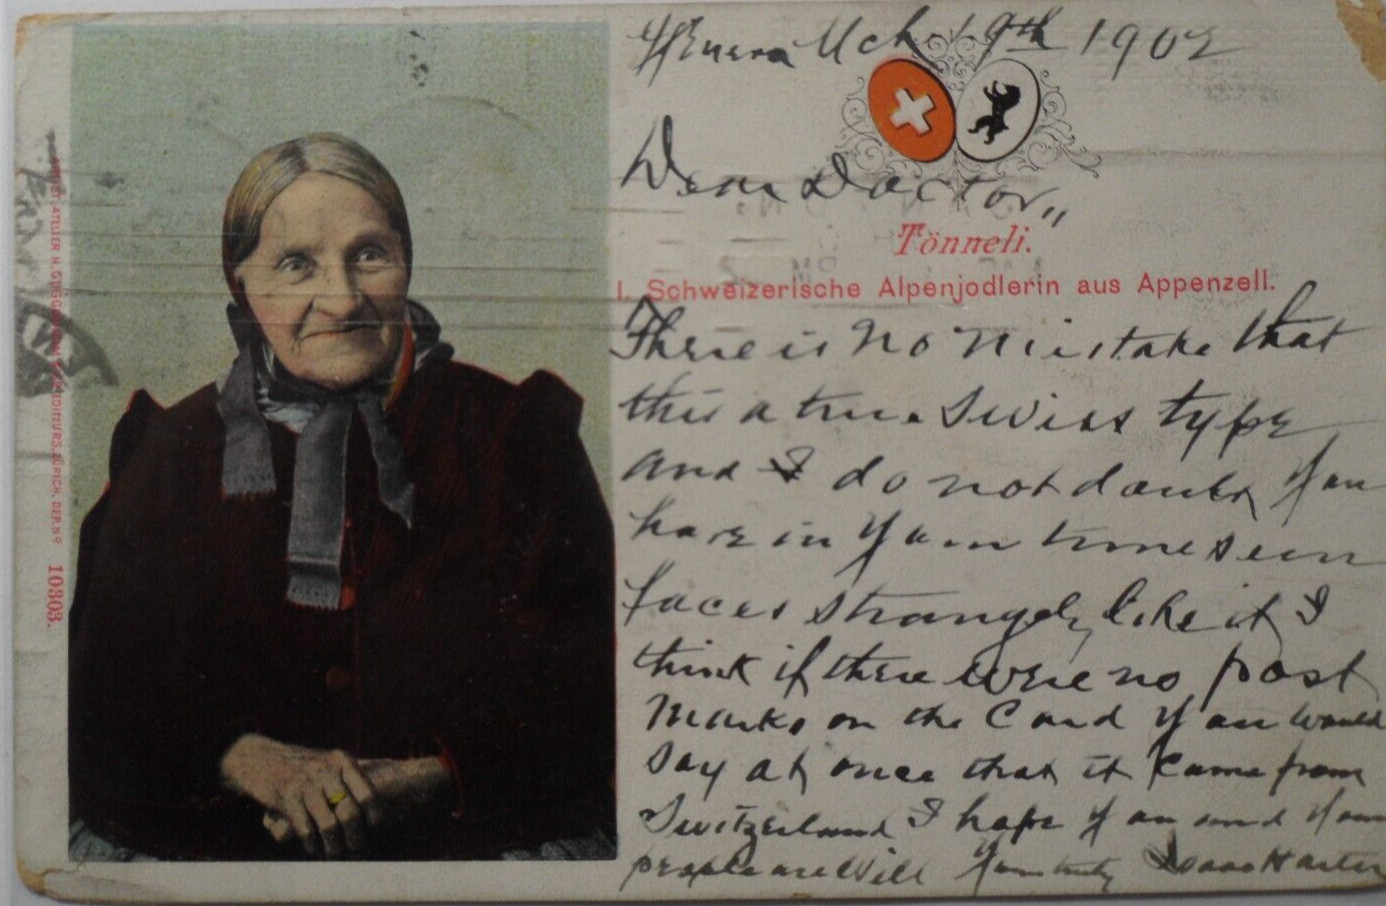 Mch 19th 1902
Dear Doctor,,
Tönneli.
I. Schweizerische Alpenjodlerin aus Appenzell.
There is no mistake that
this a true Swiss type
and I do not doubt you
have in your time seen
faces strangely like it I
think if there were no post
marks on the Card you would
say at once that it came from
Switzerland I hope you and your
people are well Yours truly Isaac Harter
EDITEURS. ZÜRICH. DEP. No
10303.